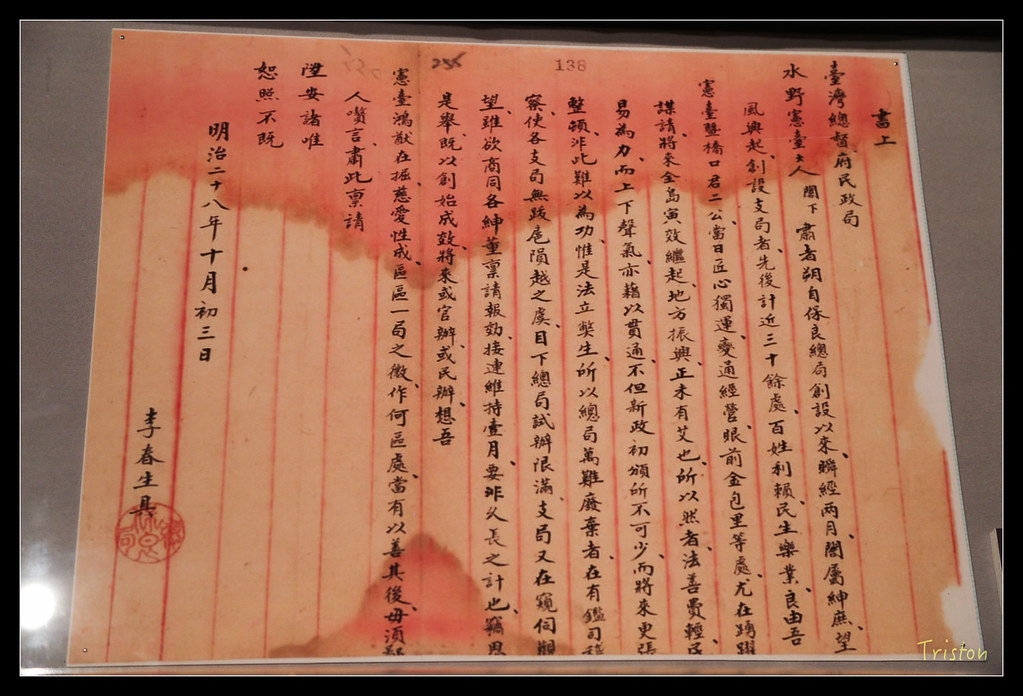 138
書上
臺灣總督府民政局
水野憲臺大人閣下肅者朔自保良總局創設以來瞬經兩月闔屬紳庶望
風興起創設支局者先後計近三十餘處百姓利賴民生樂業良由吾
憲臺暨橋口君二公當日匠心獨運變通經營眼前金包里等處尤在踴躍
謀請將來全島寅效繼起地方振興正未有艾也所以然者法善費輕民
易為力而上下聲氣亦藉以貫通不但新政初頒所不可少而將來更張
整頓非此難以為功惟是法立弊生所以總局萬難廢棄者在有鑑司稽
察使各支局無跋扈隕越之虞目下總局試辦限滿支局又在窺伺觀
望雖欲商同各紳董稟請報効接連維持壹月要非久長之計也竊思
是舉既以創始成效將來或官辦或民辦想吾
憲臺鴻猷在握慈愛性成區區一局之微作何區處當有以善其後毋須
人嘖言肅此稟請
陞安諸唯
恕照不既
明治二十八年十月初三日
李春生具
Triston